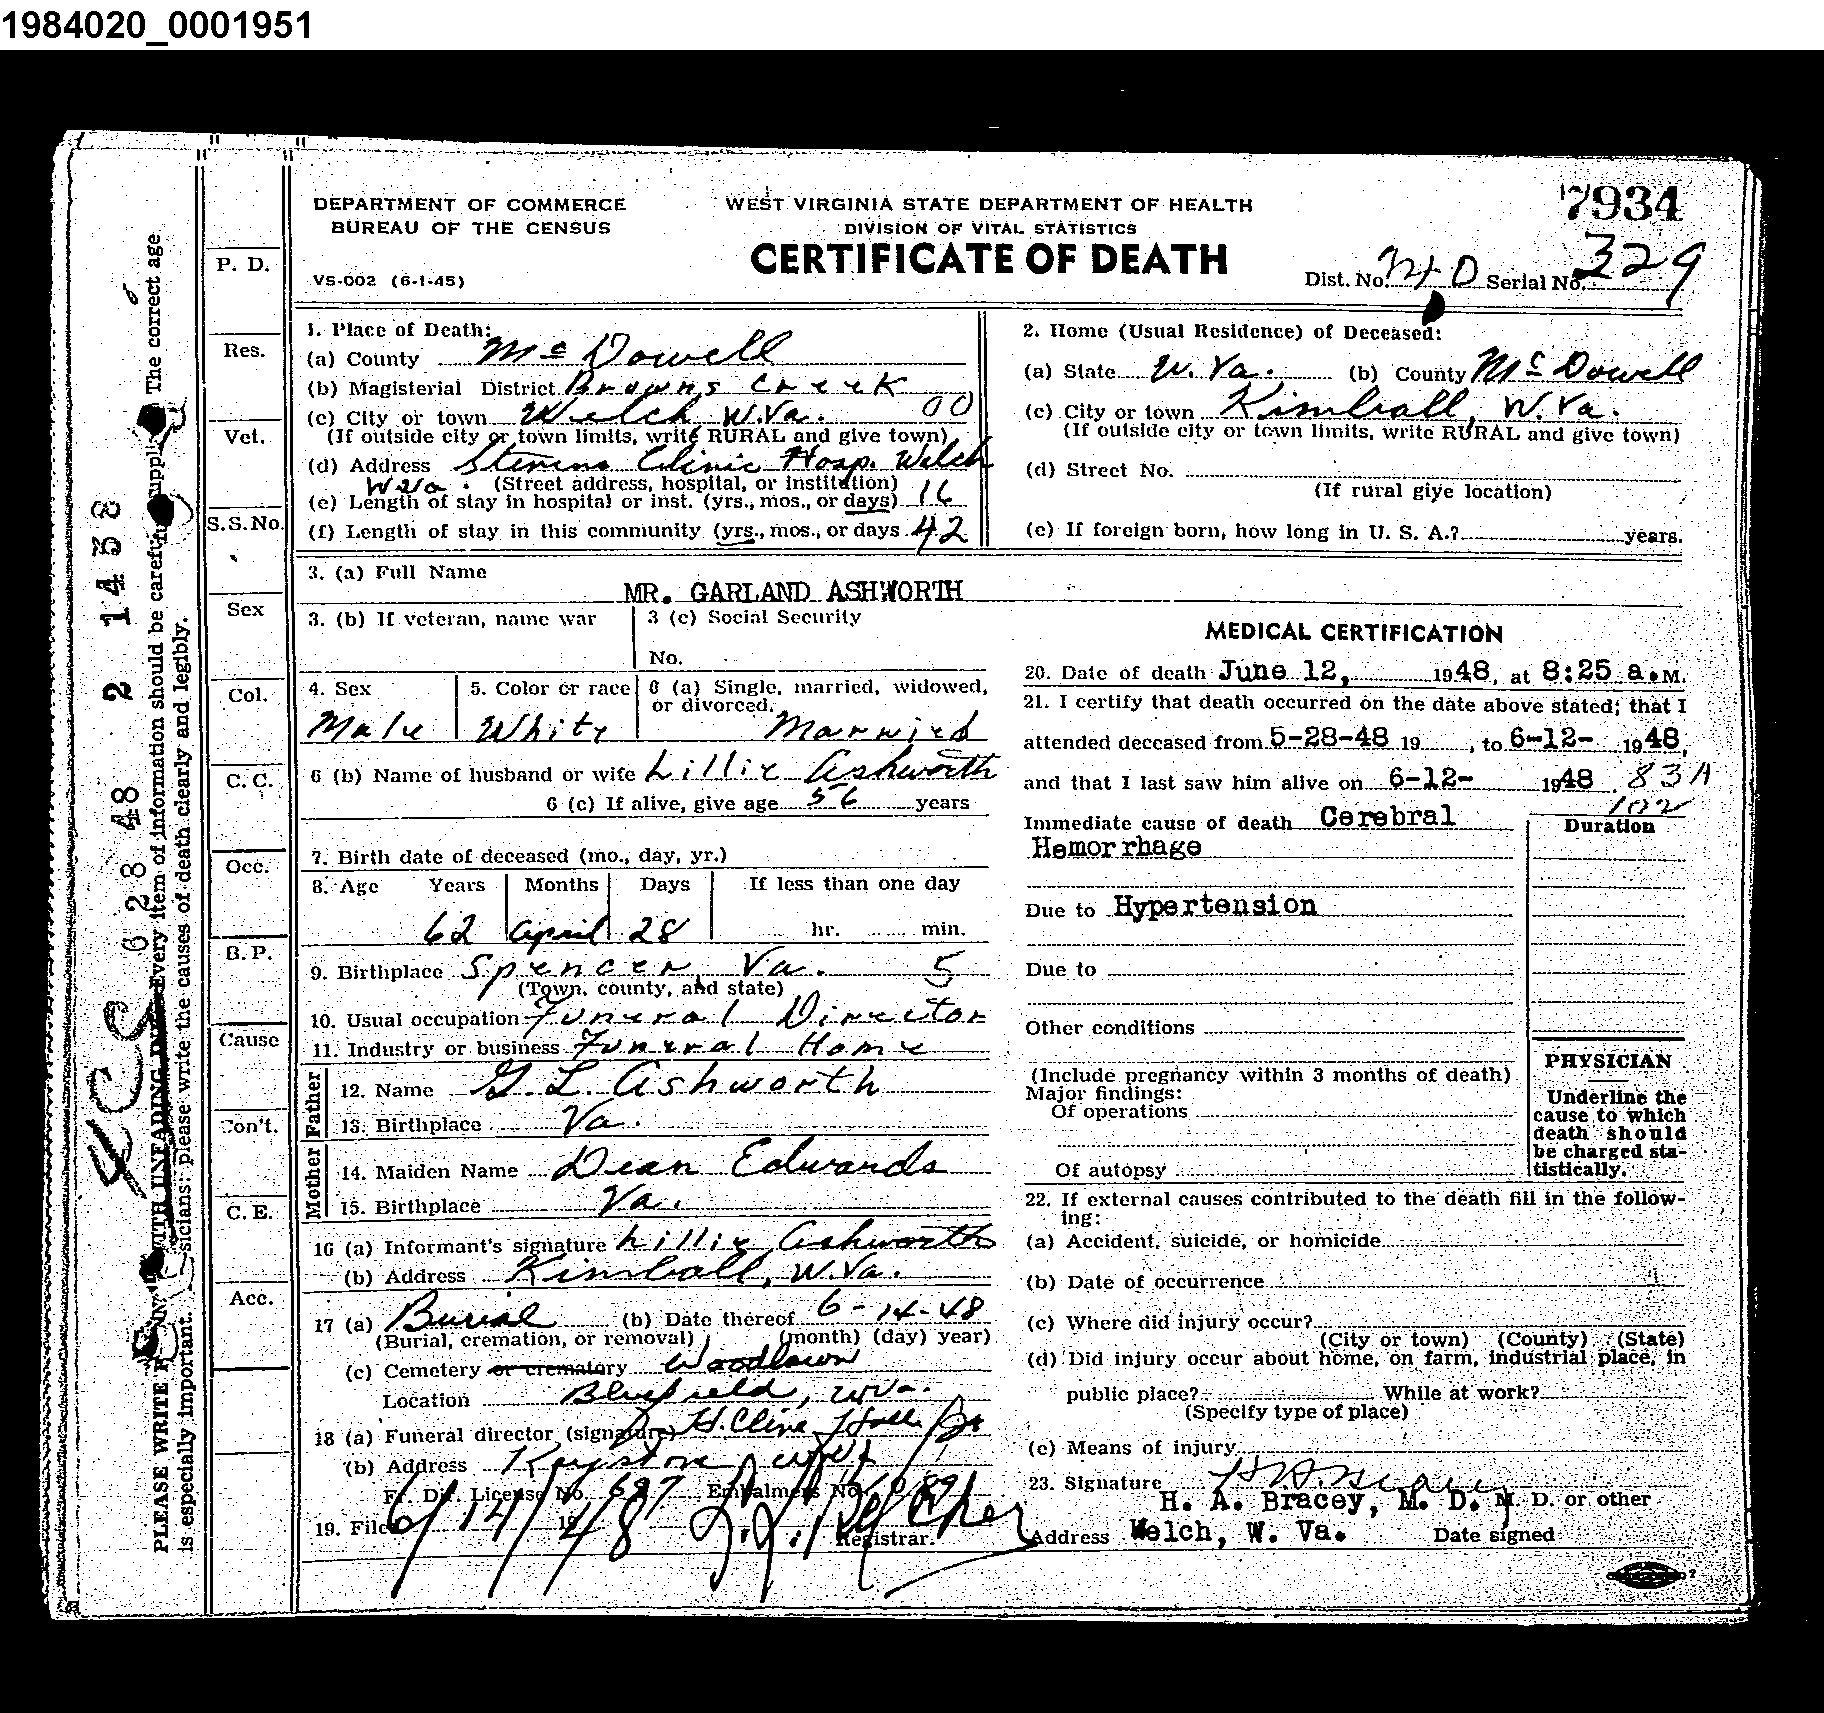 1984020_0001951
DEPARTMENT OF COMMERCE
BUREAU OF THE CENSUS
VS-002 (6-1-45)
WEST VIRGINIA STATE DEPARTMENT OF HEALTH
DIVISION OF VITAL STATISTICS
CERTIFICATE OF DEATH
7934
Dist. No. Serial No. 329
P. D.
Res.
Vet.
S.S.No.
Sex
Col.
C. C.
Occ.
B. P.
Cause
Con't.
C. E.
Acc.
1. Place of Death:
(a) County McDowell
(b) Magisterial District Browns Creek
(c) City or town Welch W.Va. 00
(If outside city or town limits, write RURAL and give town)
(d) Address Stevens Clinic Hosp. Welch
W Va. (Street address, hospital, or institution)
(e) Length of stay in hospital or inst. (yrs., mos., or days) 16
(f) Length of stay in this community (yrs., mos., or days 42
2. Home (Usual Residence) of Deceased:
(a) State W. Va. (b) County McDowell
(c) City or town Kimball, W.Va.
(If outside city or town limits, write RURAL and give town)
(d) Street No.
(If rural give location)
(e) If foreign born, how long in U. S. A.? years.
3. (a) Full Name
MR. GARLAND ASHWORTH
3. (b) If veteran, name war
3 (c) Social Security
No.
4. Sex
Male
5. Color or race
White
6 (a) Single, married, widowed,
or divorced.
Married
6 (b) Name of husband or wife Lillie Ashworth
6 (c) If alive, give age 56 years
7. Birth date of deceased (mo., day, yr.)
8. Age Years Months Days If less than one day
62 April 28 hr. min.
9. Birthplace Spencer, Va. 5
(Town, county, and state)
10. Usual occupation Funeral Director
11. Industry or business Funeral Home
Father
12. Name G. L. Ashworth
13. Birthplace Va.
Mother
14. Maiden Name Dean Edwards
15. Birthplace Va.
16 (a) Informant's signature Lillie Ashworth
(b) Address Kimball, W.Va.
17 (a) Burial (b) Date thereof 6-14-48
(Burial, cremation, or removal) (month) (day) year)
(c) Cemetery or crematory Woodlawn
Location Bluefield, W Va.
18 (a) Funeral director (signature) H. Cline Hall
(b) Address Keystone, W Va
Fr. Dir. License No. 687 Embalmers No.
19. Filed 6/14/1948 Registrar.
MEDICAL CERTIFICATION
20. Date of death June 12, 1948, at 8:25 a.M.
21. I certify that death occurred on the date above stated; that I
attended deceased from 5-28-48 19 , to 6-12- 1948,
and that I last saw him alive on 6-12- 1948 83A
102
Immediate cause of death Cerebral
Hemorrhage
Duration
Due to Hypertension
Due to
Other conditions
(Include pregnancy within 3 months of death)
Major findings:
Of operations
Of autopsy
PHYSICIAN
Underline the
cause to which
death should
be charged sta-
tistically.
22. If external causes contributed to the death fill in the follow-
ing:
(a) Accident, suicide, or homicide
(b) Date of occurrence
(c) Where did injury occur?
(City or town) (County) (State)
(d) Did injury occur about home, on farm, industrial place, in
public place? While at work?
(Specify type of place)
(e) Means of injury
23. Signature
H. A. Bracey, M. D. M. D. or other
Address Welch, W. Va. Date signed
6 28 48 2 1438
The correct age
Every item of information should be carefully
PLEASE WRITE WITH UNFADING INK
is especially important. sicians: please write the causes of death clearly and legibly.